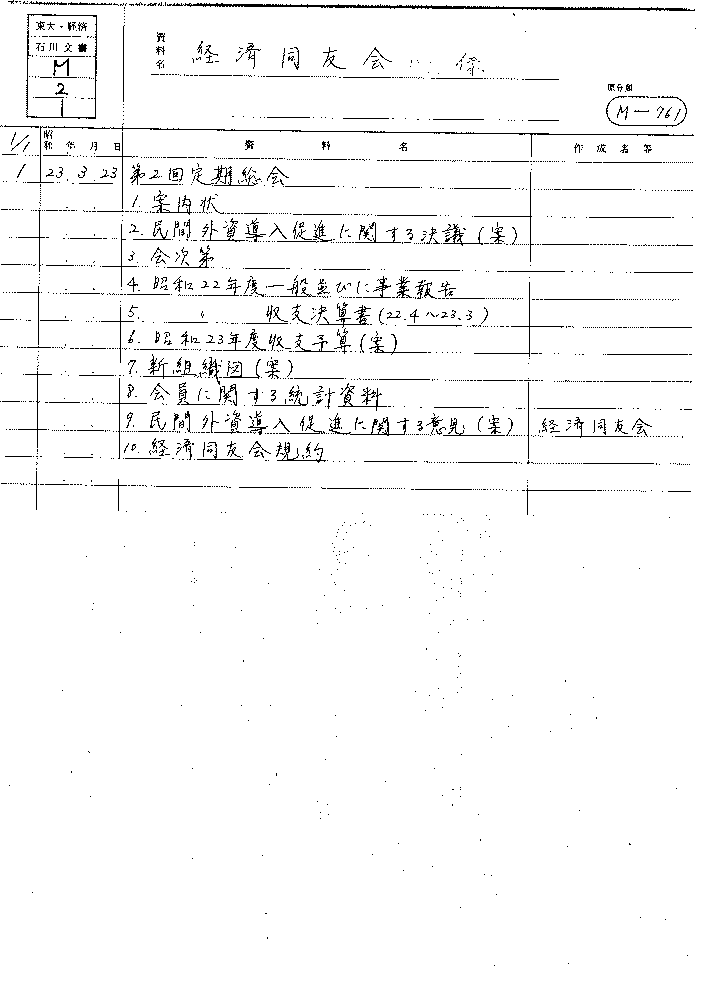 東大・経済
石川文書
M
2
1
資料名 経済同友会 係
原分類
M-761
1/1 昭和 年 月 日 資料名 作成者等
1 23.3.23 第2回定期総会
1. 案内状
2. 民間外資導入促進に関する決議(案)
3. 会次第
4. 昭和22年度一般並びに事業報告
5. 〃 収支決算書(22.4~23.3)
6. 昭和23年度収支予算(案)
7. 新組織図(案)
8. 会員に関する統計資料
9. 民間外資導入促進に関する意見(案) 経済同友会
10. 経済同友会規約